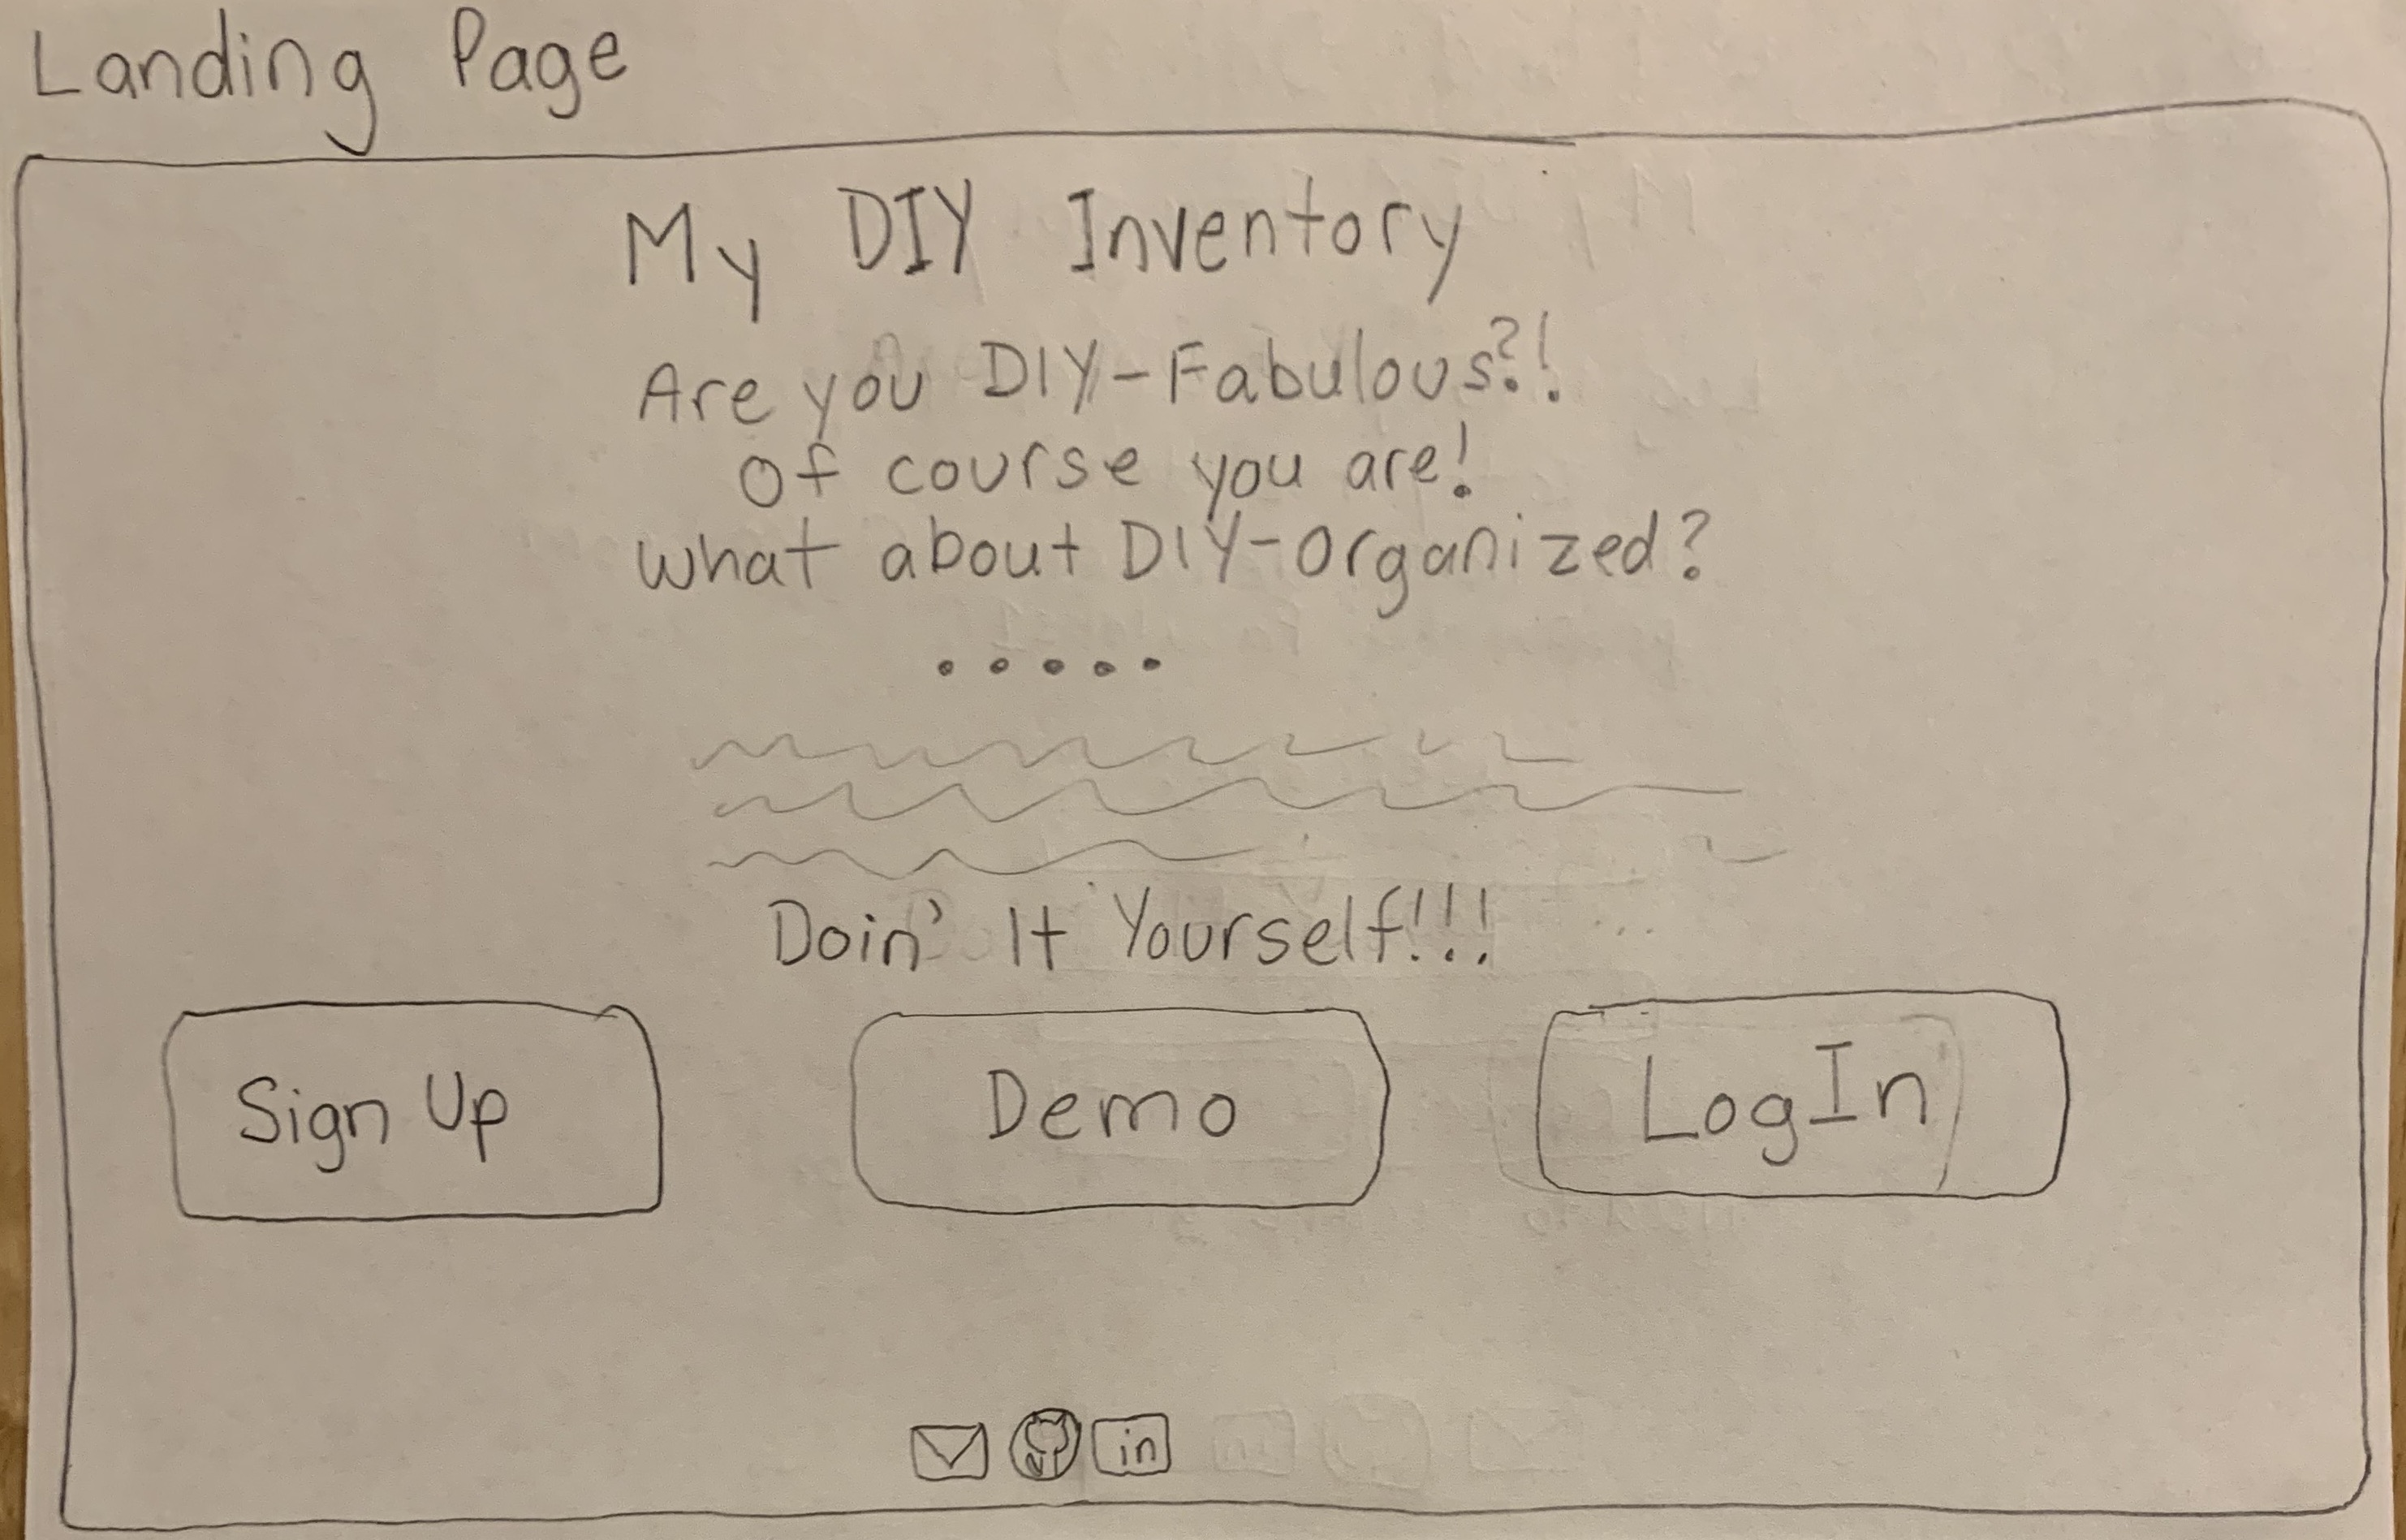 Landing Page
My DIY Inventory
Are you DIY-Fabulous?!
Of course you are!
What about DIY-Organized?
.....
Doin' It Yourself!!!
Sign Up
Demo
LogIn
in